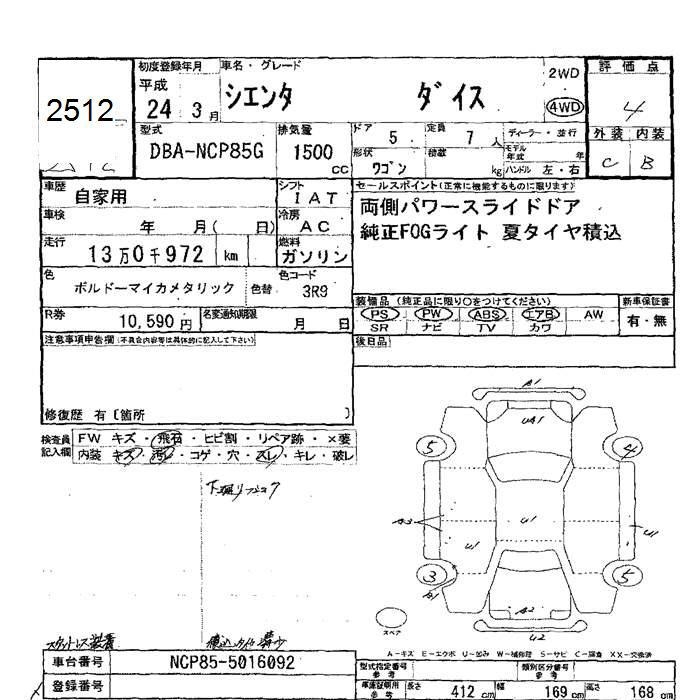 初度登録年月 車名・グレード 評価点
平成 24 3月 シエンタ ダイス 2WD 4WD 4
2512
外装 内装
C B
型式 排気量 ドア 5 定員 7人 ディーラー・並行
DBA-NCP85G 1500cc 形状 ワゴン 積数 kg モデル年式 年 ハンドル 左・右
車歴 自家用 シフト IAT セールスポイント(正常に機能するものに限ります)
車検 年 月( 日) 冷房 AC 両側パワースライドドア
走行 13万0千972 km 燃料 ガソリン 純正FOGライト 夏タイヤ積込
色 ボルドーマイカメタリック 色替 色コード 3R9
装備品(純正品に限り○をつけてください) 新車保証書
R券 10,590円 名変通知期限 月 日 PS PW ABS エアB AW 有・無
SR ナビ TV カワ
注意事項申告欄(不具合内容等は具体的に記入して下さい) 後日品
修復歴 有〔箇所 〕
検査員記入欄 FW キズ・飛石・ヒビ割・リペア跡・×要
内装 キズ・汚レ・コゲ・穴・スレ・キレ・破レ
A1
UA1
5 4
A3 U1 U1
U1
3 5
A2
スペア U2
A-キズ E-エクボ U-凹み W-補修跡 S-サビ C-腐食 XX-交換済
車台番号 NCP85-5016092 型式指定番号 参考 類別区分番号 参考
登録番号 車庫証明用 参考 長さ 412cm 幅 169cm 高さ 168cm